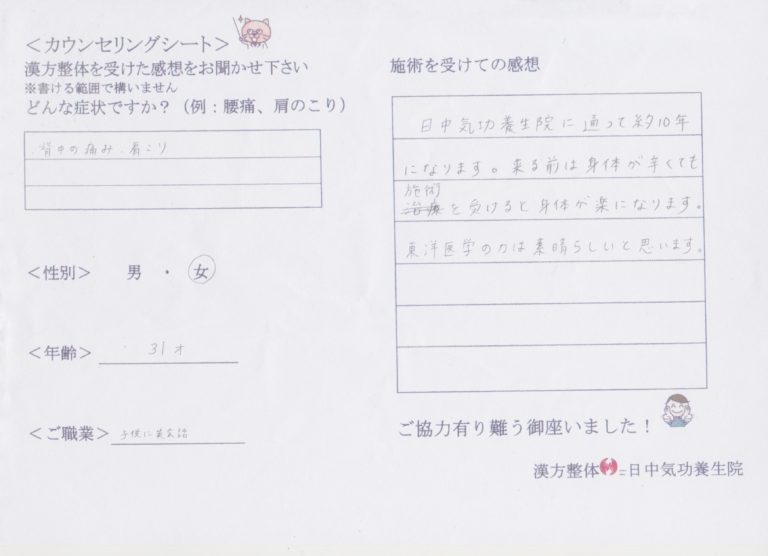 ＜カウンセリングシート＞
漢方整体を受けた感想をお聞かせ下さい
※書ける範囲で構いません
どんな症状ですか？（例：腰痛、肩のこり）
背中の痛み、肩こり
＜性別＞　男　・　女
＜年齢＞　31才
＜ご職業＞　子供に英会話
施術を受けての感想
日中気功養生院に通って約10年
になります。来る前は身体が辛くても
施術
治療を受けると身体が楽になります。
東洋医学の力は素晴らしいと思います。
ご協力有り難う御座いました！
漢方整体 日中気功養生院